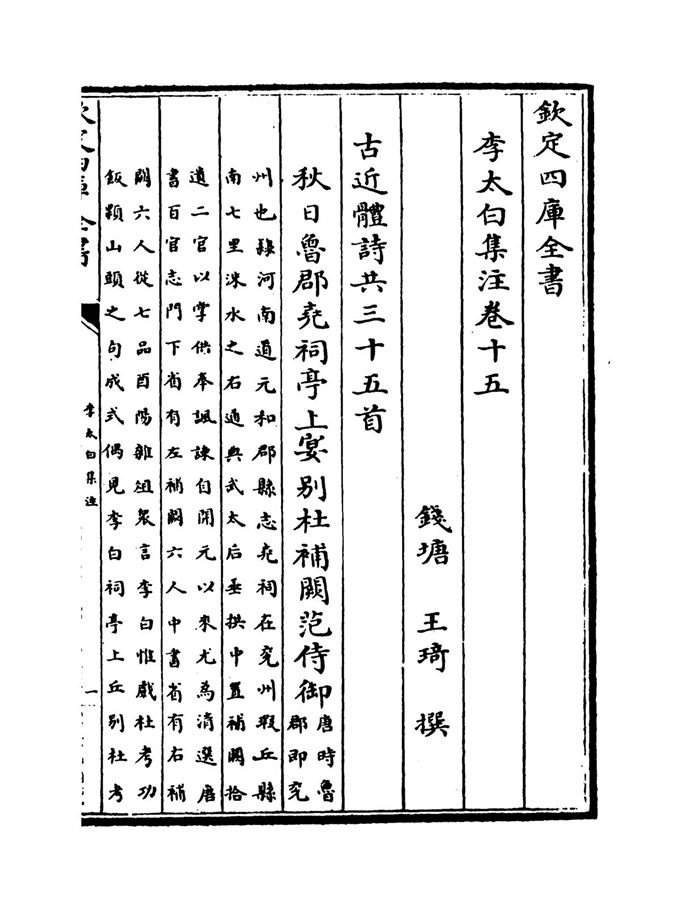 欽定四庫全書
李太白集注卷十五
錢塘 王琦 撰
古近體詩共三十五首
秋日魯郡堯祠亭上宴别杜補闕范侍御
唐時魯
郡即兖
州也隸河南道元和郡縣志堯祠在兖州瑕丘縣
南七里洙水之右通典武太后垂拱中置補闕拾
遺二官以掌供奉諷諫自開元以來尤為清選唐
書百官志門下省有左補闕六人中書省有右補
闕六人從七品酉陽雜俎衆言李白惟戲杜考功
飯顆山頭之句成式偶見李白祠亭上丘别杜考
李太白集注
一